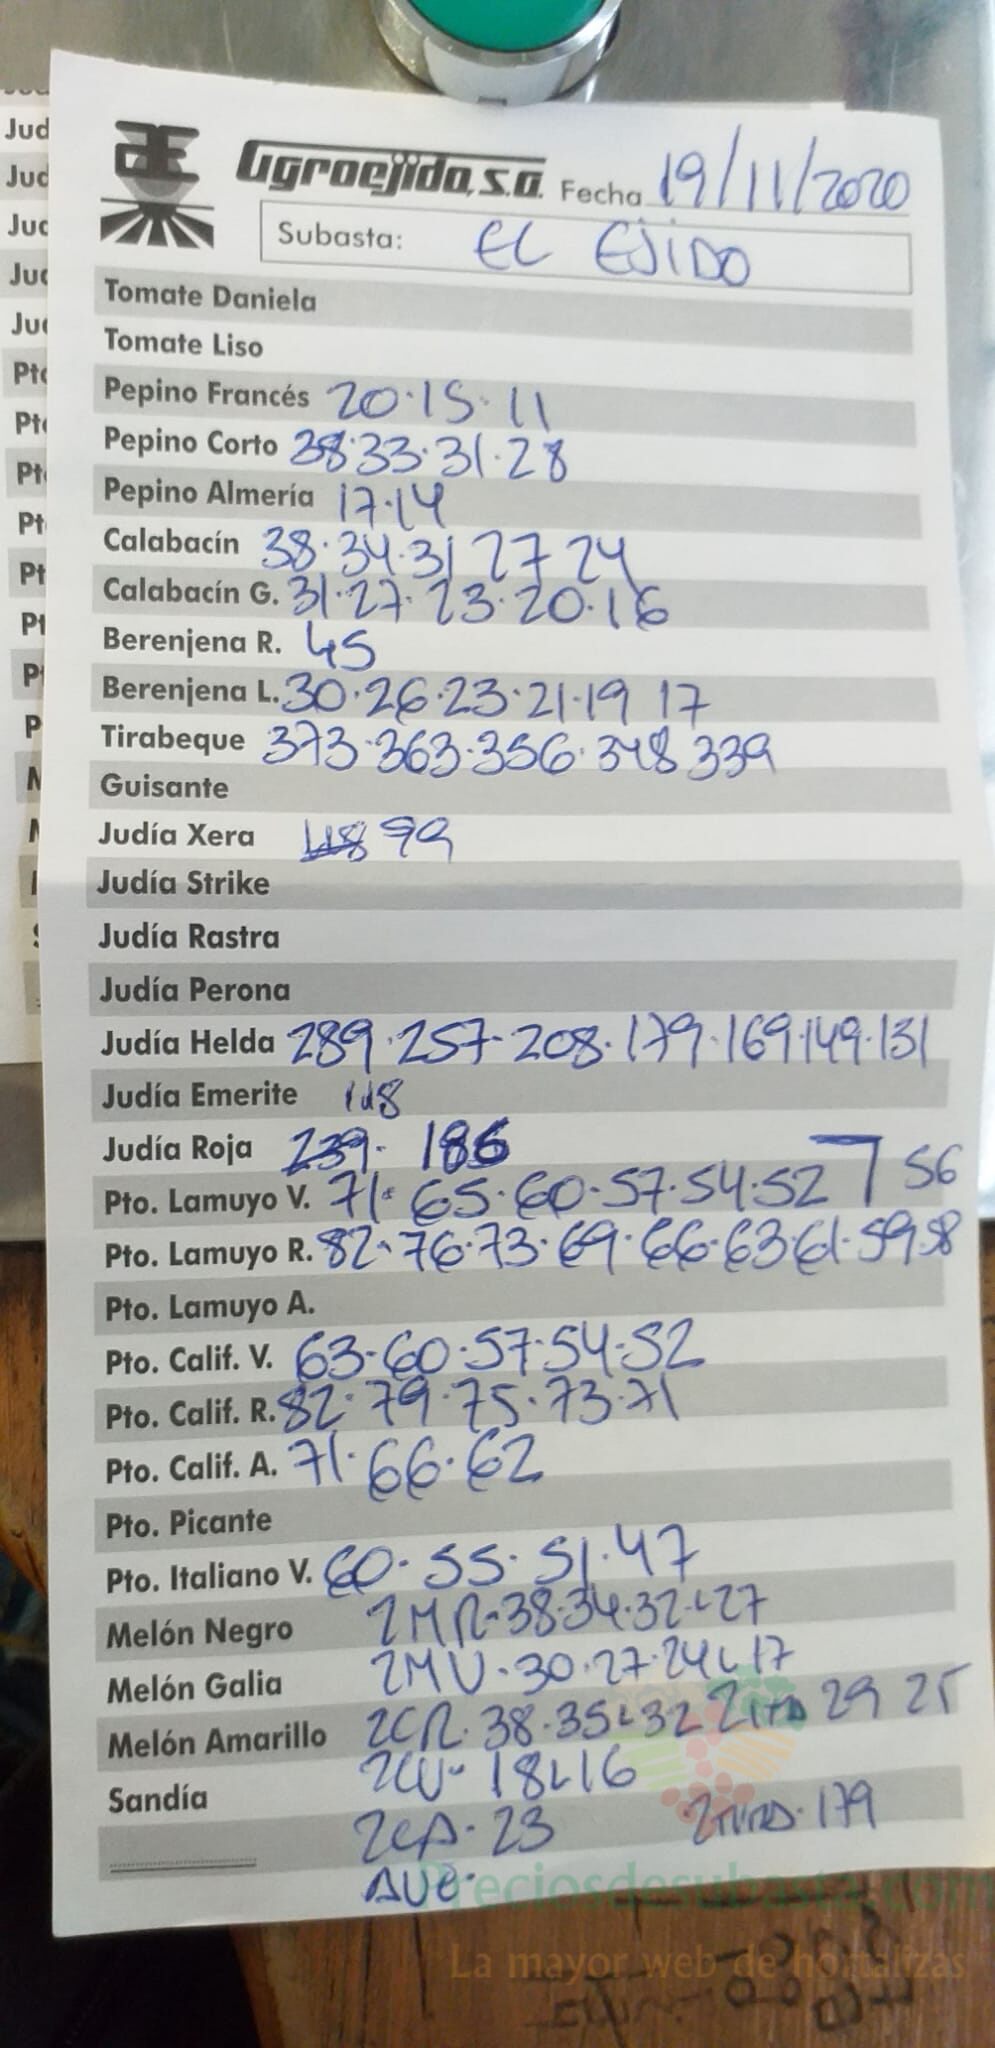 Jud
Jud
Jud
Jud
Pto
Pto
Pt
Pt
Pt
Pt
P
P
Agroejido, S.A. Fecha 19/11/2020
Subasta: EL EJIDO
Tomate Daniela
Tomate Liso
Pepino Francés 20·15·11
Pepino Corto 38·33·31·28
Pepino Almería 17·14
Calabacín 38·34·31 27 24
Calabacín G. 31·27·23·20·16
Berenjena R. 45
Berenjena L. 30·26·23·21·19 17
Tirabeque 373·363·356·348 339
Guisante
Judía Xera 99
Judía Strike
Judía Rastra
Judía Perona
Judía Helda 289·257·208·179·169·149·131
Judía Emerite 148
Judía Roja 239· 186
Pto. Lamuyo V. 71·65·60·57·54·52 7 56
Pto. Lamuyo R. 82·76·73·69·66·63·61·59·58
Pto. Lamuyo A.
Pto. Calif. V. 63·60·57·54·52
Pto. Calif. R. 82·79·75·73·71
Pto. Calif. A. 71·66·62
Pto. Picante
Pto. Italiano V. 60·55·51·47
Melón Negro 2MR·38·34·32L27
Melón Galia 2MV·30·27·24L17
Melón Amarillo 2CR·38·35L32 29 25
2CV·18L16
Sandía
2CA·23 179
Preciosdesubasta.com
La mayor web de hortalizas